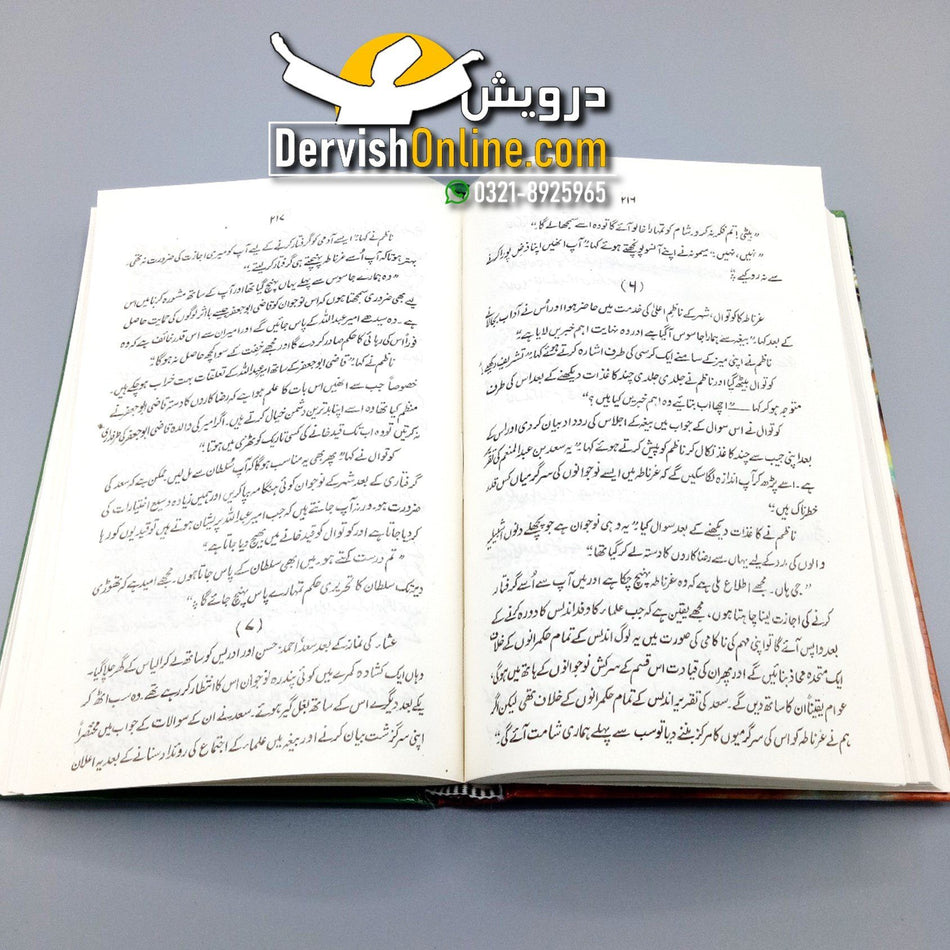 درویش
DervishOnline.com
0321-8925965
۲۱۶
"بیٹی! تم فکر نہ کرو۔ شام کو تمہارا خالو آئے گا تو وہ اسے سمجھا لے گا۔"
"نہیں، نہیں" میمونہ نے اپنے آنسو پونچھتے ہوئے کہا "آپ انھیں اپنا فرض پورا کرنے
سے نہ روکیے۔"
(۶)
غرناطہ کا کوتوال، شہر کے ناظم اعلیٰ کی خدمت میں حاضر ہوا اور اُس نے آداب بجا لانے
کے بعد کہا۔ "بیغہ سے ہمارا جاسوس آگیا ہے اور وہ نہایت اہم خبریں لایا ہے"
ناظم نے اپنی میز کے سامنے ایک کرسی کی طرف اشارہ کرتے ہوئے کہا "تشریف رکھیے"
کوتوال بیٹھ گیا اور ناظم نے جلدی جلدی چند کاغذات دیکھنے کے بعد اس کی طرف
متوجہ ہو کر کہا ـــ "اچھا اب بتائیے وہ اہم خبریں کیا ہیں؟"
کوتوال نے اس سوال کے جواب میں بیغہ کے اجلاس کی روداد بیان کر دی اور اس کے
بعد اپنی جیب سے چند کاغذ نکال کر ناظم کو پیش کرتے ہوئے کہا "یہ سعد بن عبدالمنعم کی تقریر
ہے۔ اسے پڑھ کر آپ اندازہ لگا سکیں گے کہ غرناطہ میں ایسے نوجوانوں کی سرگرمیاں کس قدر
خطرناک ہیں"
ناظم نے کاغذات دیکھنے کے بعد سوال کیا "یہ وہی نوجوان ہے جو پچھلے دنوں اشبیلیہ
والوں کی مدد کے لیے یہاں سے رضاکاروں کا دستہ لے کر گیا تھا"
"جی ہاں۔ مجھے اطلاع ملی ہے کہ وہ غرناطہ پہنچ چکا ہے اور میں آپ سے اُسے گرفتار
کرنے کی اجازت لینا چاہتا ہوں۔ مجھے یقین ہے کہ جب علماء کا وفد اندلس کا دورہ کرنے کے
بعد واپس آئے گا تو اپنی مہم کی ناکامی کی صورت میں یہ لوگ اندلس کے تمام حکمرانوں کے خلاف
ایک متحدہ محاذ بنائیں گے اور پھر ان کی قیادت اس قسم کے سرکش نوجوانوں کے ہاتھ میں ہوگی،
عوام یقیناً ان کا ساتھ دیں گے۔ سعد کی تقریر اندلس کے تمام حکمرانوں کے خلاف تھی لیکن اگر
ہم نے غرناطہ کو اس کی سرگرمیوں کا مرکز بننے دیا تو سب سے پہلے ہماری شامت آئے گی"
۲۱۷
ناظم نے کہا۔ "ایسے آدمی کو گرفتار کرنے کے لیے آپ کو میری اجازت کی ضرورت نہ تھی۔
بہتر ہوتا کہ آپ اُسے غرناطہ پہنچتے ہی گرفتار کر لیتے"
"وہ ہمارے جاسوس سے پہلے یہاں پہنچ گیا تھا اور آپ کے ساتھ مشورہ کرنا میں اس
لیے بھی ضروری سمجھتا ہوں کہ اس نوجوان کو قاضی ابوجعفر جیسے با اثر لوگوں کی حمایت حاصل
ہے۔ وہ سیدھے امیر عبداللہ کے پاس جائیں گے اور امیر ان سے اس قدر خائف ہے کہ وہ
فوراً اس کی رہائی کا حکم صادر کر دے گا اور مجھے خفت کے سوا کچھ حاصل نہ ہو گا"
ناظم نے کہا "قاضی ابوجعفر کے ساتھ امیر عبداللہ کے تعلقات بہت خراب ہو چکے ہیں۔
خصوصاً جب سے انھیں اس بات کا علم ہوا ہے کہ رضاکاروں کا دستہ قاضی ابوجعفر نے
منظم کیا تھا وہ اسے اپنا بدترین دشمن خیال کرتے ہیں۔ اگر امیر کی والدہ قاضی ابوجعفر کی طرفداری
نہ کرتیں تو وہ اب تک قید خانے کی کسی تاریک کوٹھڑی میں ہوتا"
کوتوال نے کہا "پھر بھی یہ مناسب ہو گا کہ آپ سلطان سے مل لیں، ممکن ہے کہ سعد کی
گرفتاری کے بعد شہر کے نوجوان کوئی ہنگامہ برپا کریں اور ہمیں زیادہ وسیع اختیارات کی
ضرورت ہو، ورنہ آپ جانتے ہیں کہ جب امیر عبداللہ پریشان ہوتے ہیں تو قیدیوں کو رہا
کر دیا جاتا ہے اور کوتوال کو قید خانے میں بھیج دیا جاتا ہے"
"تم درست کہتے ہو۔ میں ابھی سلطان کے پاس جاتا ہوں۔ مجھے امید ہے کہ تھوڑی
دیر تک سلطان کا تحریری حکم تمہارے پاس پہنچ جائے گا"
(۷)
عشاء کی نماز کے بعد سعد، احمد، حسن اور ادریس کو ساتھ لے کر الیاس کے گھر چلا گیا۔
وہاں ایک کشادہ کمرے میں کوئی پندرہ نوجوان اس کا انتظار کر رہے تھے۔ وہ سب اٹھ کر
یکے بعد دیگرے اس کے ساتھ بغل گیر ہوئے۔ سعد نے ان کے سوالات کے جواب میں مختصراً
اپنی سرگزشت بیان کرنے اور بیغہ میں علماء کے اجتماع کی روئداد سنانے کے بعد یہ اعلان